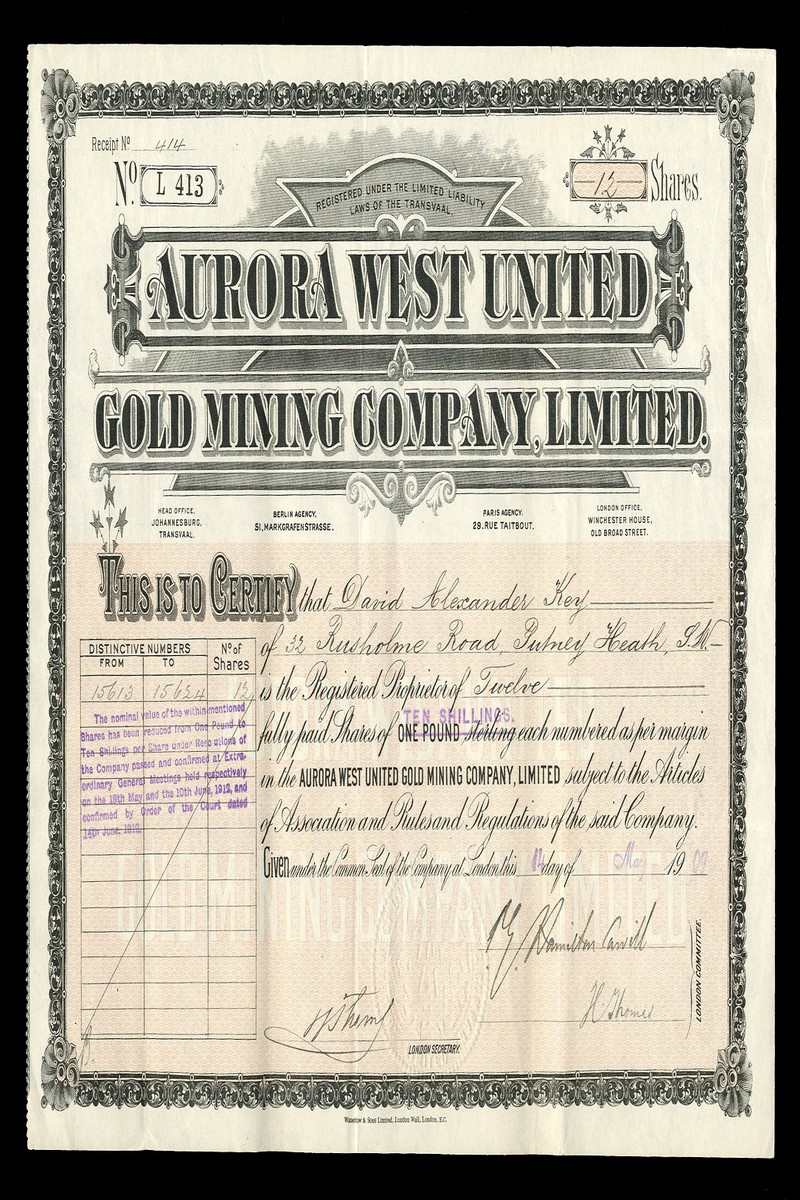 Receipt No 414
No. L 413
12 Shares.
REGISTERED UNDER THE LIMITED LIABILITY
LAWS OF THE TRANSVAAL.
AURORA WEST UNITED
GOLD MINING COMPANY, LIMITED.
HEAD OFFICE,
JOHANNESBURG,
TRANSVAAL.
BERLIN AGENCY,
51, MARKGRAFENSTRASSE.
PARIS AGENCY.
29. RUE TAITBOUT.
LONDON OFFICE,
WINCHESTER HOUSE,
OLD BROAD STREET.
THIS IS TO CERTIFY that David Alexander Key
of 32 Rusholme Road, Putney Heath, S.W.
is the Registered Proprietor of Twelve
TEN SHILLINGS.
fully paid Shares of ONE POUND sterling each numbered as per margin
in the AURORA WEST UNITED GOLD MINING COMPANY, LIMITED subject to the Articles
of Association and Rules and Regulations of the said Company.
Given under the Common Seal of the Company at London this 14 day of May 1909
DISTINCTIVE NUMBERS No of
FROM TO Shares
15613 15624 12
The nominal value of the within mentioned
Shares has been reduced from One Pound to
Ten Shillings per Share under Resolutions of
the Company passed and confirmed at Extra-
ordinary General Meetings held respectively
on the 18th May and the 10th June, 1912, and
confirmed by Order of the Court dated
14th June, 1912.
Hamilton
H. Thomas
LONDON COMMITTEE.
LONDON SECRETARY.
Waterlow & Sons Limited, London Wall, London, E.C.